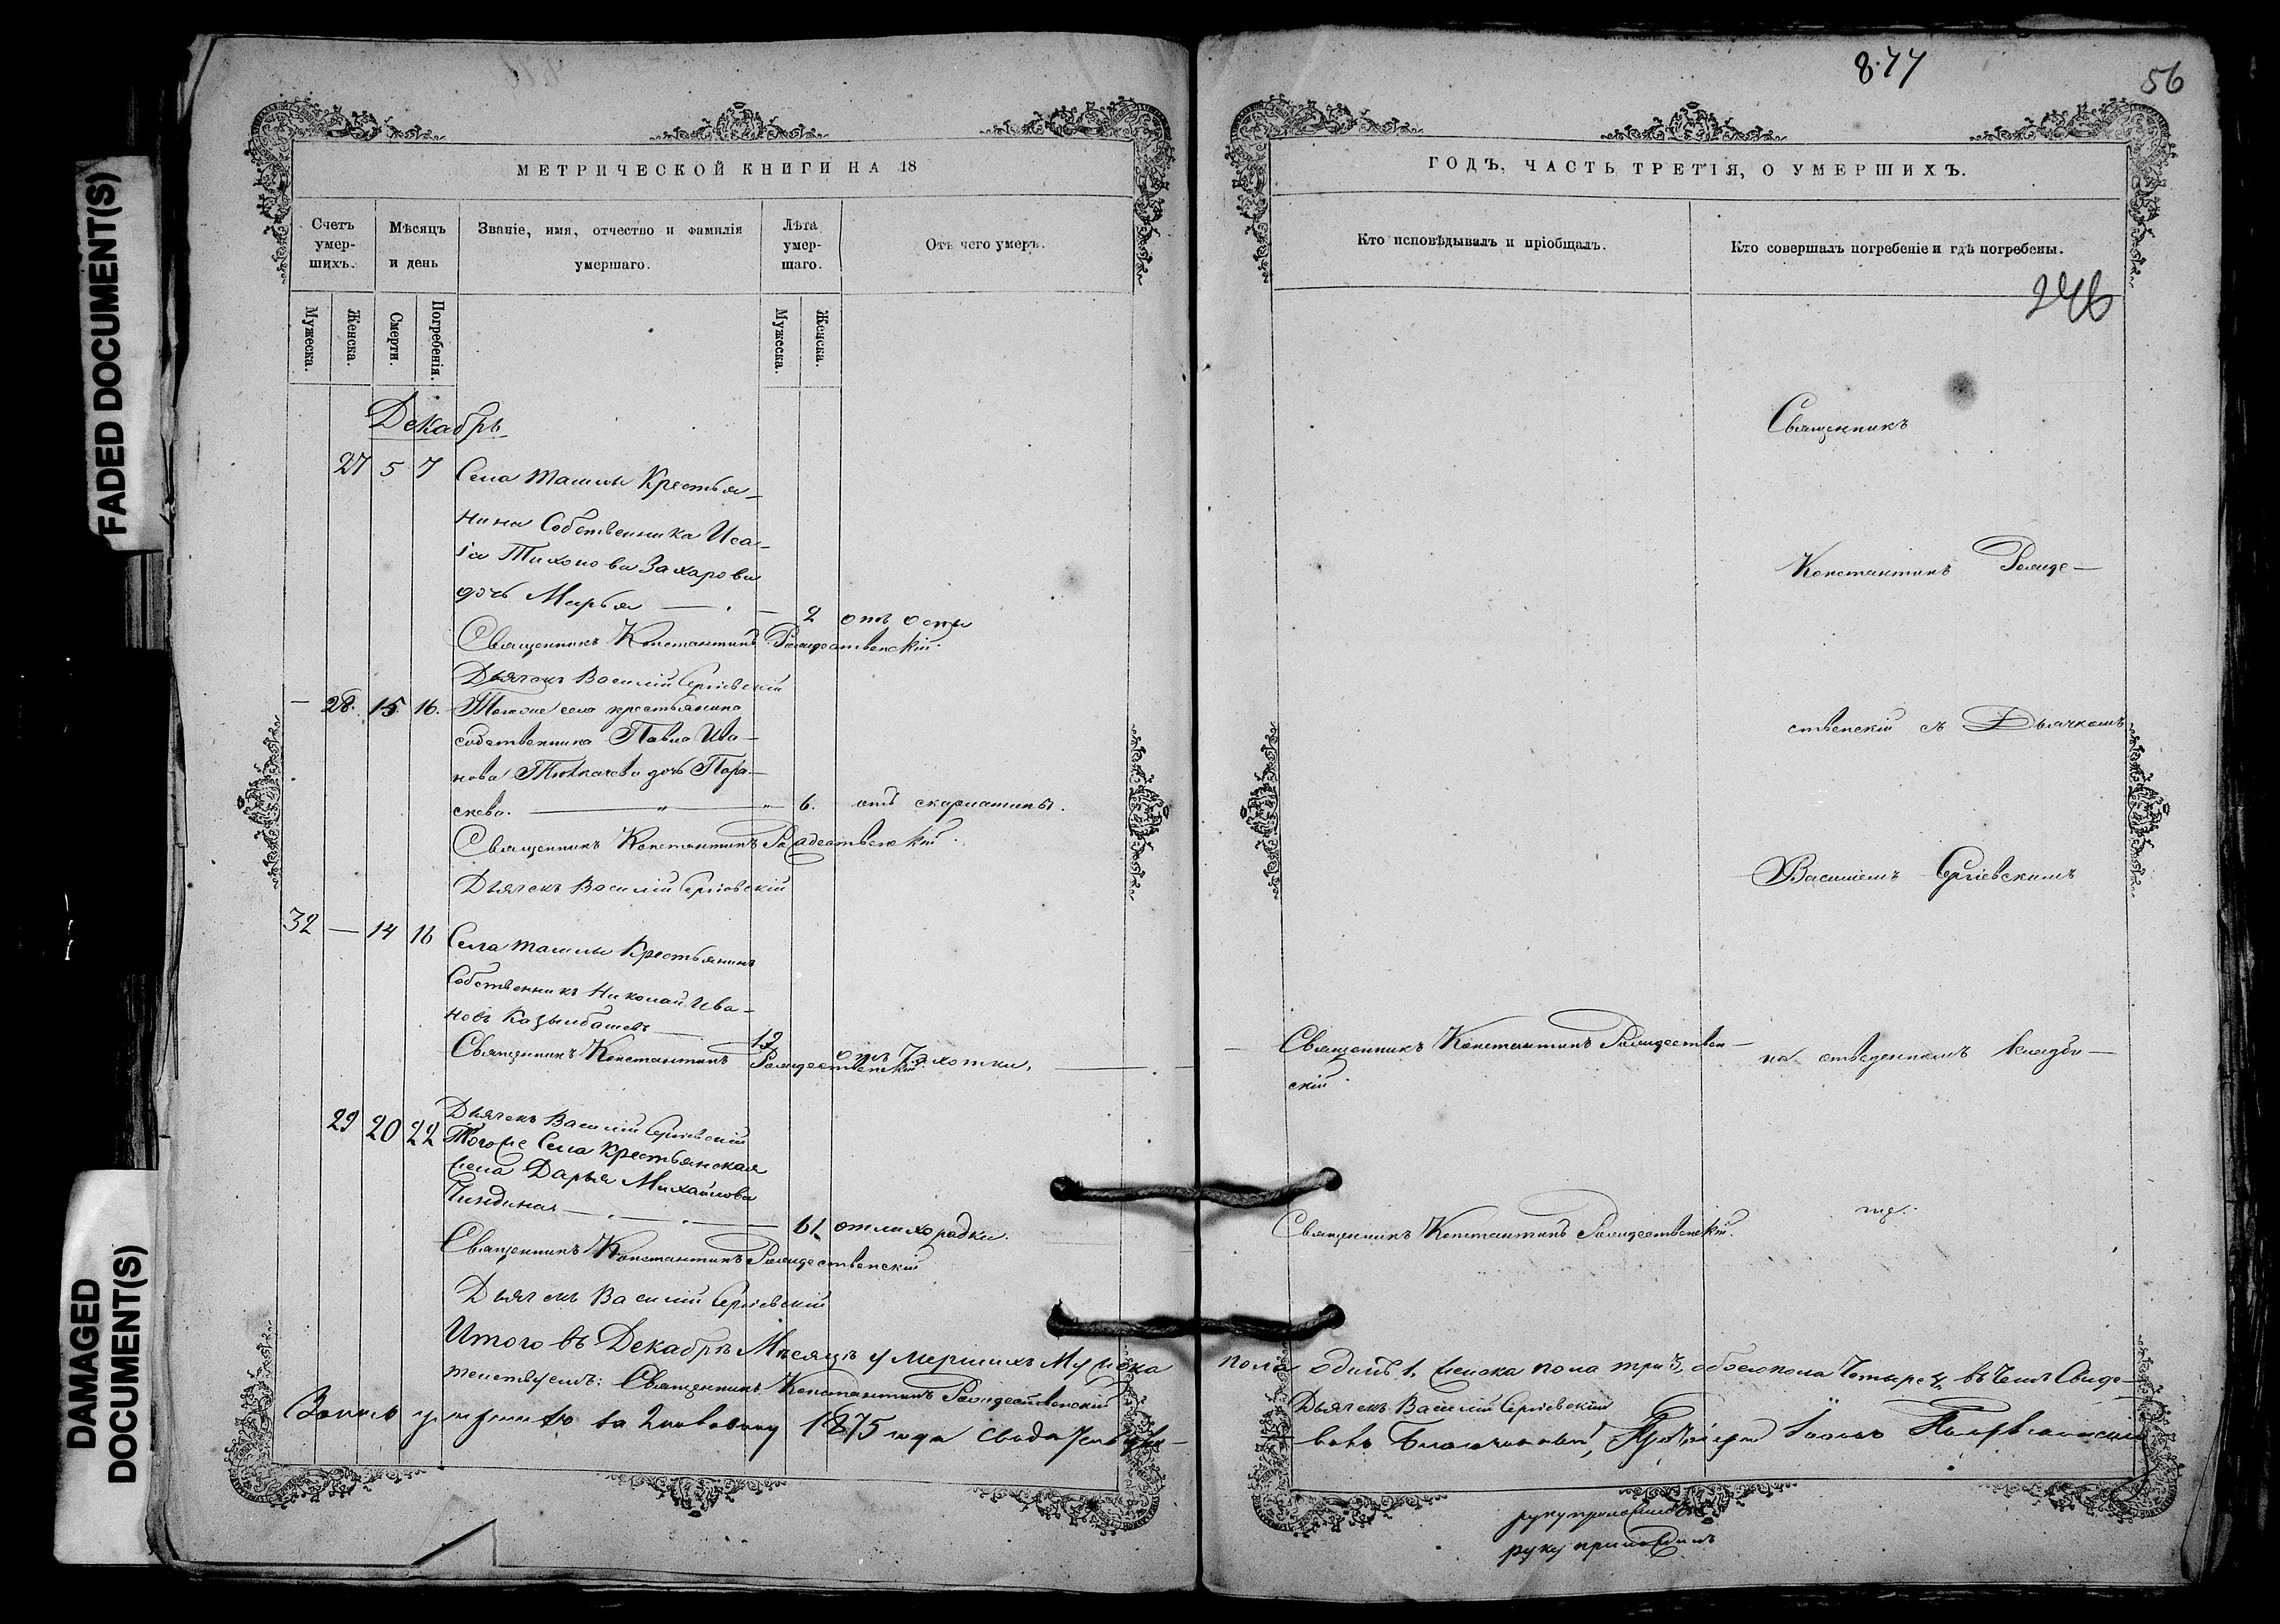 FADED DOCUMENT(S)
DAMAGED
DOCUMENT(S)
МЕТРИЧЕСКОЙ КНИГИ НА 18
Счетъ умер-шихъ.
Мѣсяцъ и день
Званіе, имя, отчество и фамилія умершаго.
Лѣта умер-шаго.
Отъ чего умеръ.
Мужеска.
Женска.
Смерти.
Погребенія.
Мужеска.
Женска.
Декабрь
27 5 7 Села Ташлы Крестья-
нина Собственника Иса-
іи Тихонова Захарова
дочь Марья — 2 отъ оспы
Священникъ Константинъ Рождественскій.
Дьячекъ Василій Сергіевскій
— 28. 15. 16. Тогоже села крестьянина
собственника Павла Ива-
нова дочь Пара-
скева. — 6. отъ скарлатины.
Священникъ Константинъ Рождественскій
Дьячекъ Василій Сергіевскій
32 — 14 16 Села Ташлы Крестьянинъ
Собственникъ Николай Ива-
новъ — 12 отъ Чахотки.
Священникъ Константинъ Рождественскій.
Дьячекъ Василій Сергіевскій
29 20 22 Тогоже Села Крестьянская
жена Дарья Михайлова
— 61 отъ лихорадки.
Священникъ Константинъ Рождественскій
Дьячекъ Василій Сергіевскій
Итого въ Декабрѣ Мѣсяцѣ умершихъ Мужска
тельствуемъ: Священникъ Константинъ Рождественскій
1875 года
877
56
ГОДЪ, ЧАСТЬ ТРЕТІЯ, О УМЕРШИХЪ.
Кто исповѣдывалъ и пріобщалъ.
Кто совершалъ погребеніе и гдѣ погребены.
246
Священникъ
Константинъ Рожде-
ственскій съ Дьячкомъ
Василіемъ Сергіевскимъ
Священникъ Константинъ Рождествен-
скій.
на отведенномъ кладби-
щѣ.
Священникъ Константинъ Рождественскій.
пола одинъ 1, женска пола три 3, обоего пола Четыре 4, въ чемъ Свидѣ-
Дьячекъ Василій Сергіевскій
руку приложилъ
руку приложилъ